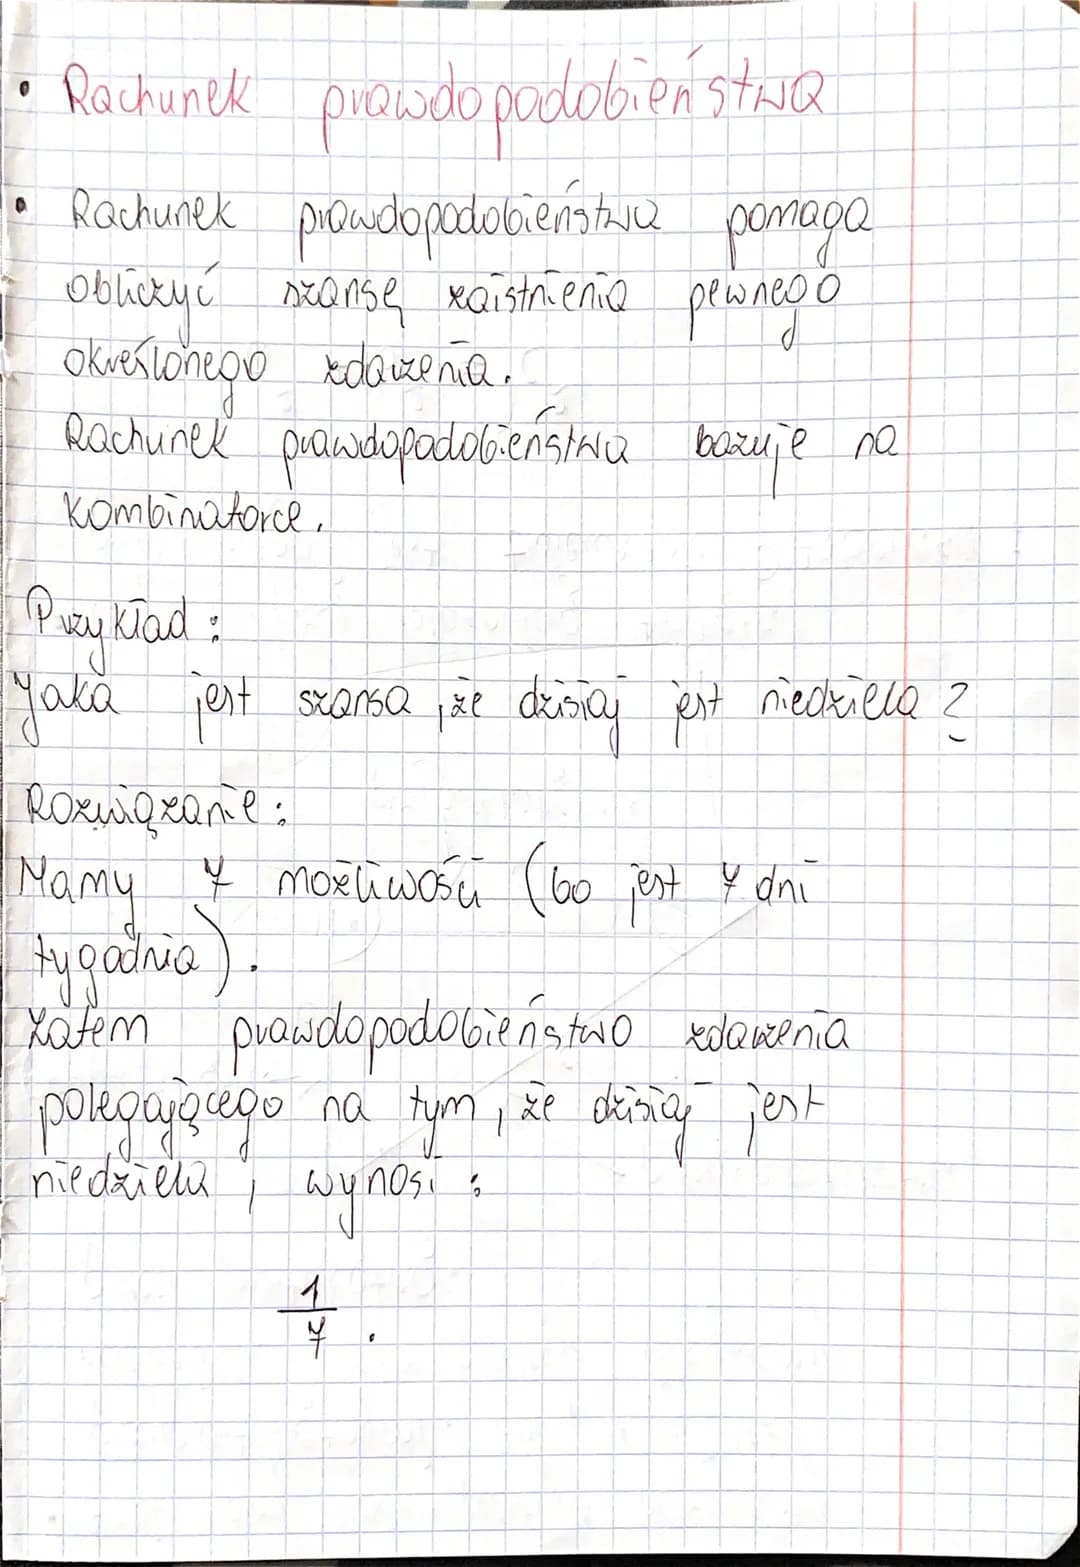 • Rachunek prawdopodobieństwa
• Rachunek prawdopodobieństwa pomaga
obliczyć szansę zaistnienia pewnego
określonego zdarzenia.
Rachunek prawdopodobieństwa bazuje na
kombinatorce.
Przykład:
Jaka jest szansa, że dzisiaj jest niedziela?
Rozwiązanie:
Mamy 7 możliwości (bo jest 7 dni
tygodnia).
Zatem prawdopodobieństwo zdarzenia
polegającego na tym, że dzisiaj jest
niedziela, wynosi:
1/7.